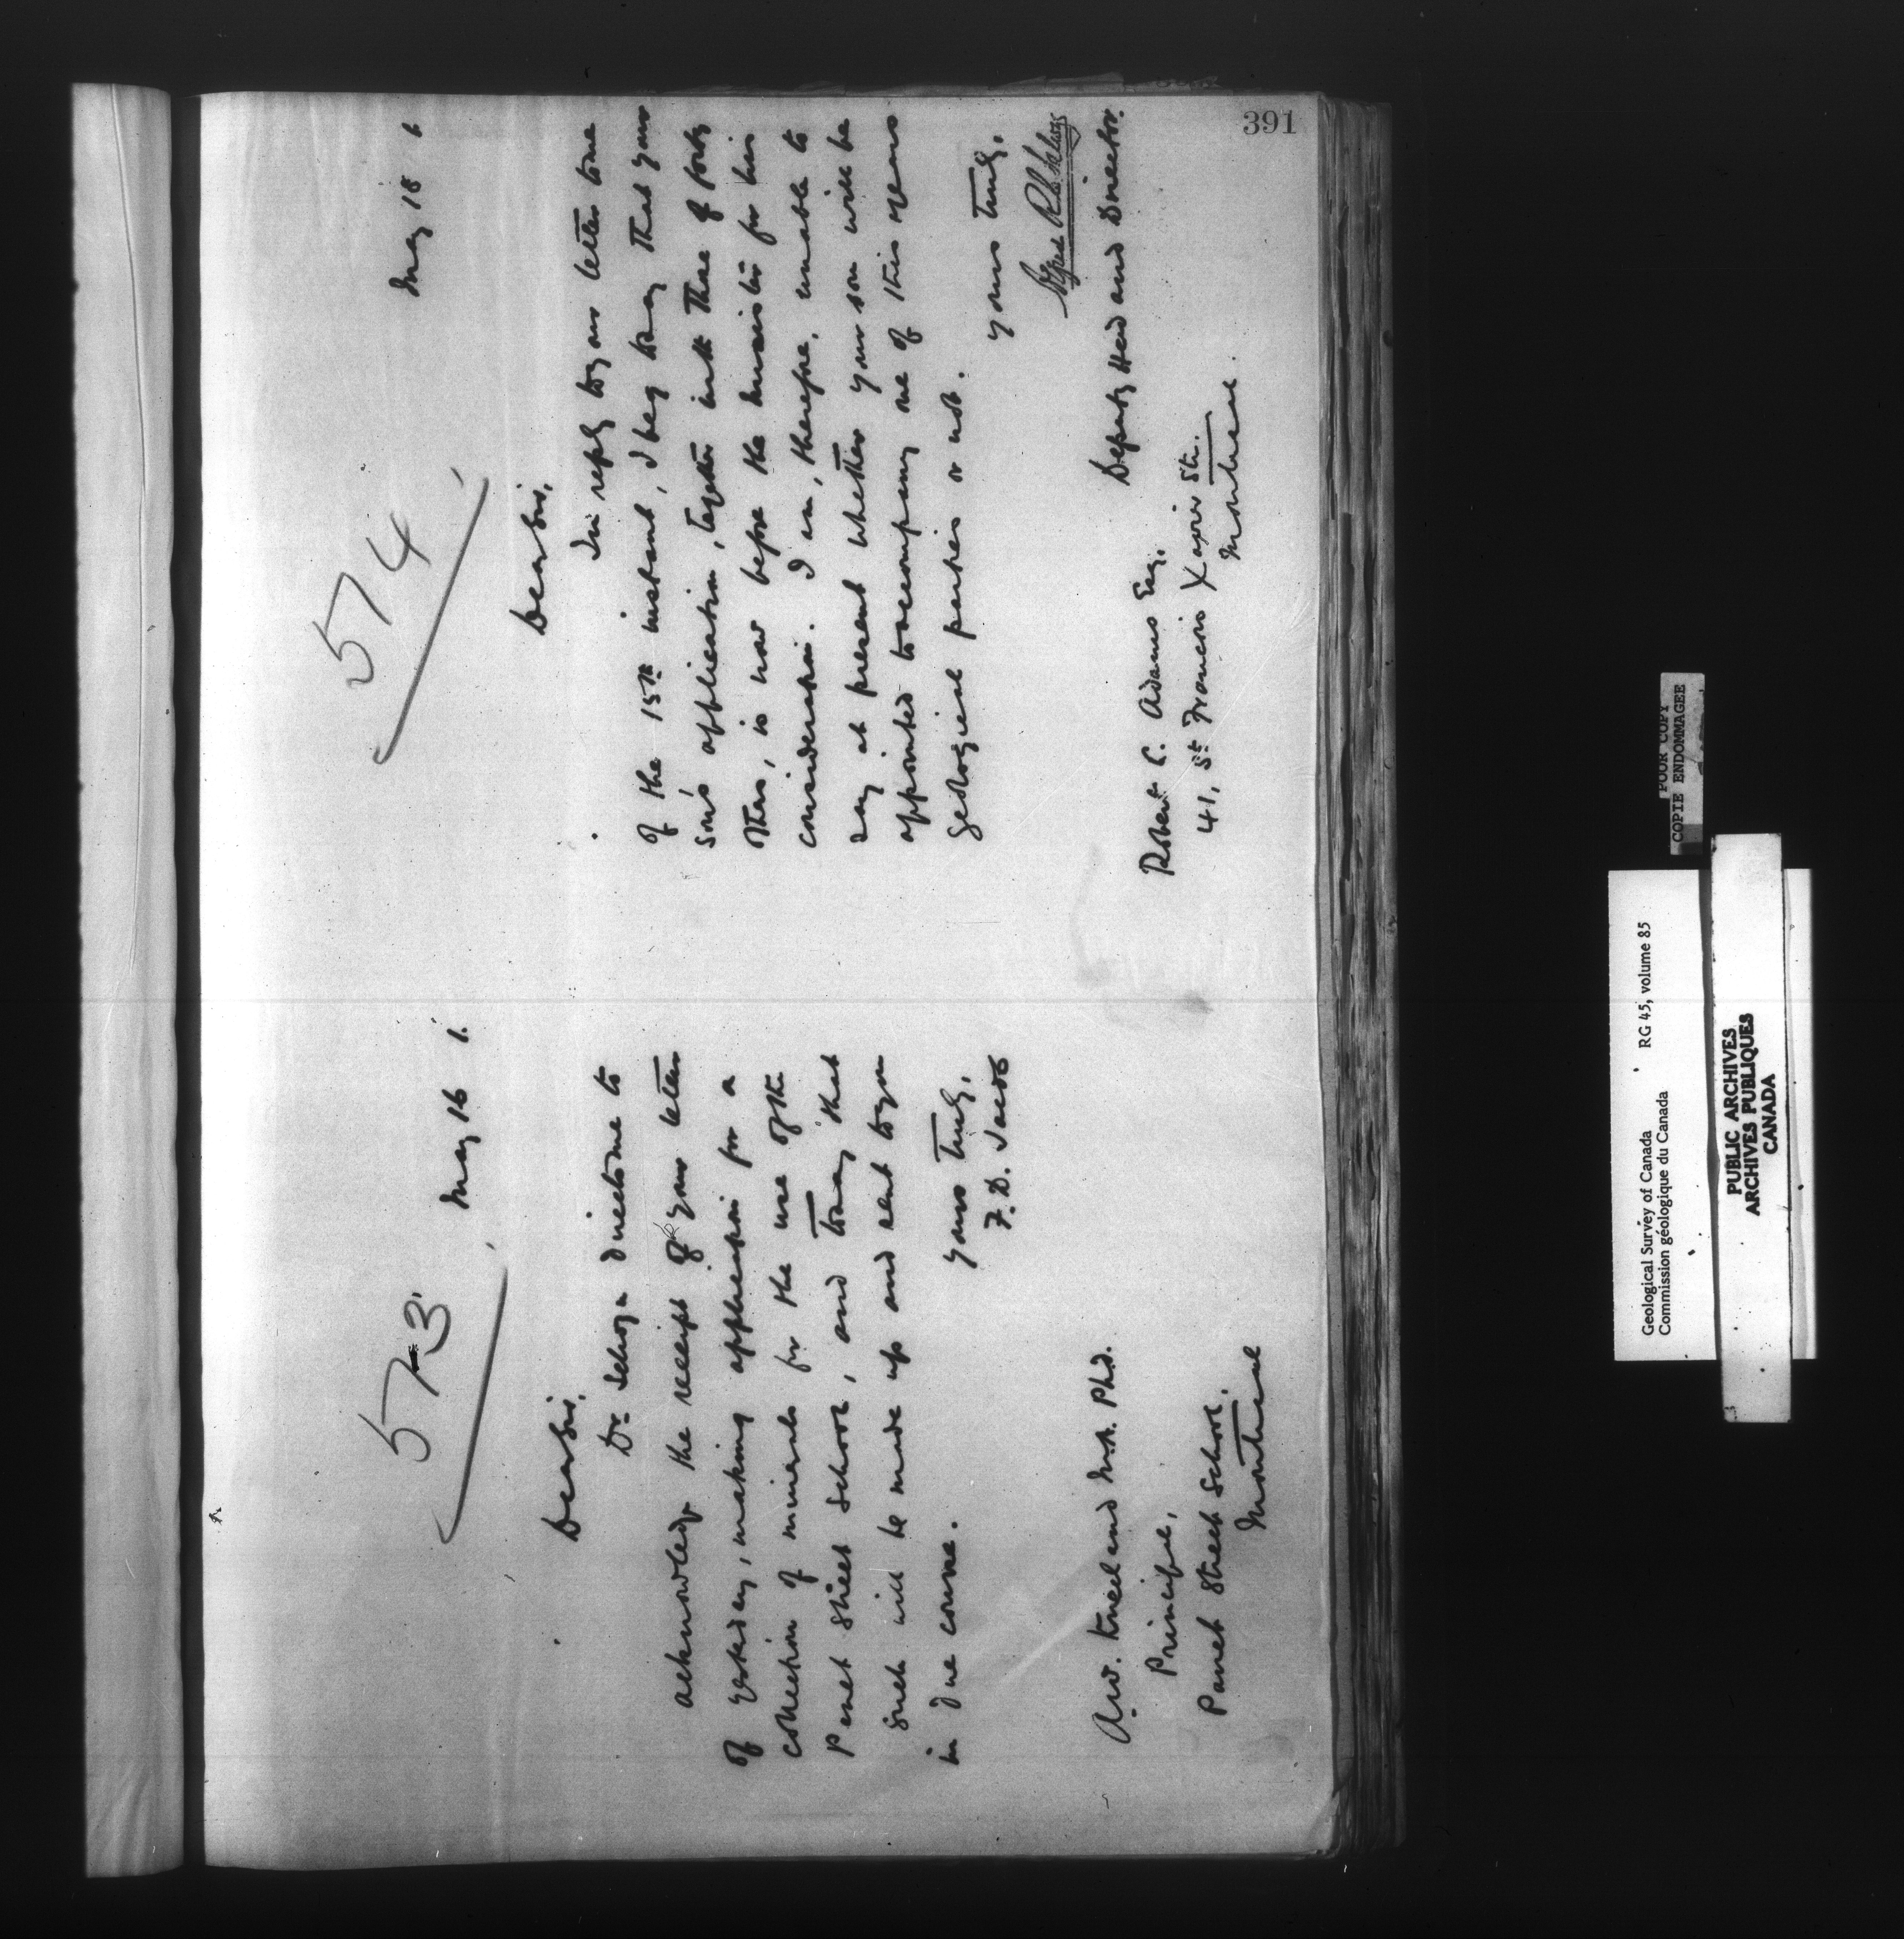 391
573
May 16 1.
Dear Sir,
Dr Selwyn directs me to
acknowledge the receipt of your letter
of yesterday, making application for a
collection of minerals for the use of the
Panet Street School, and to say that
such will be made up and sent to you
in due course.
Yours truly,
F. D. Jacob
A.W. Kneeland M.A. Ph.D.
Principal,
Panet Street School,
Montreal
574
May 18 1.
Dear Sir,
In reply to your letter to me
of the 15th instant, I beg to say that your
son's application, together with those of forty
others, is now before the Minister for his
consideration. I am, therefore, unable to
say at present whether your son will be
appointed to accompany one of this years
geological parties or not.
Yours truly,
Alfred R. C. Selwyn
Deputy Head and Director.
Robert C. Adams Esq.
41, St Francois Xavier St.
Montreal.
POOR COPY
COPIE ENDOMMAGEE
Geological Survey of Canada RG 45, volume 85
Commission géologique du Canada
PUBLIC ARCHIVES
ARCHIVES PUBLIQUES
CANADA